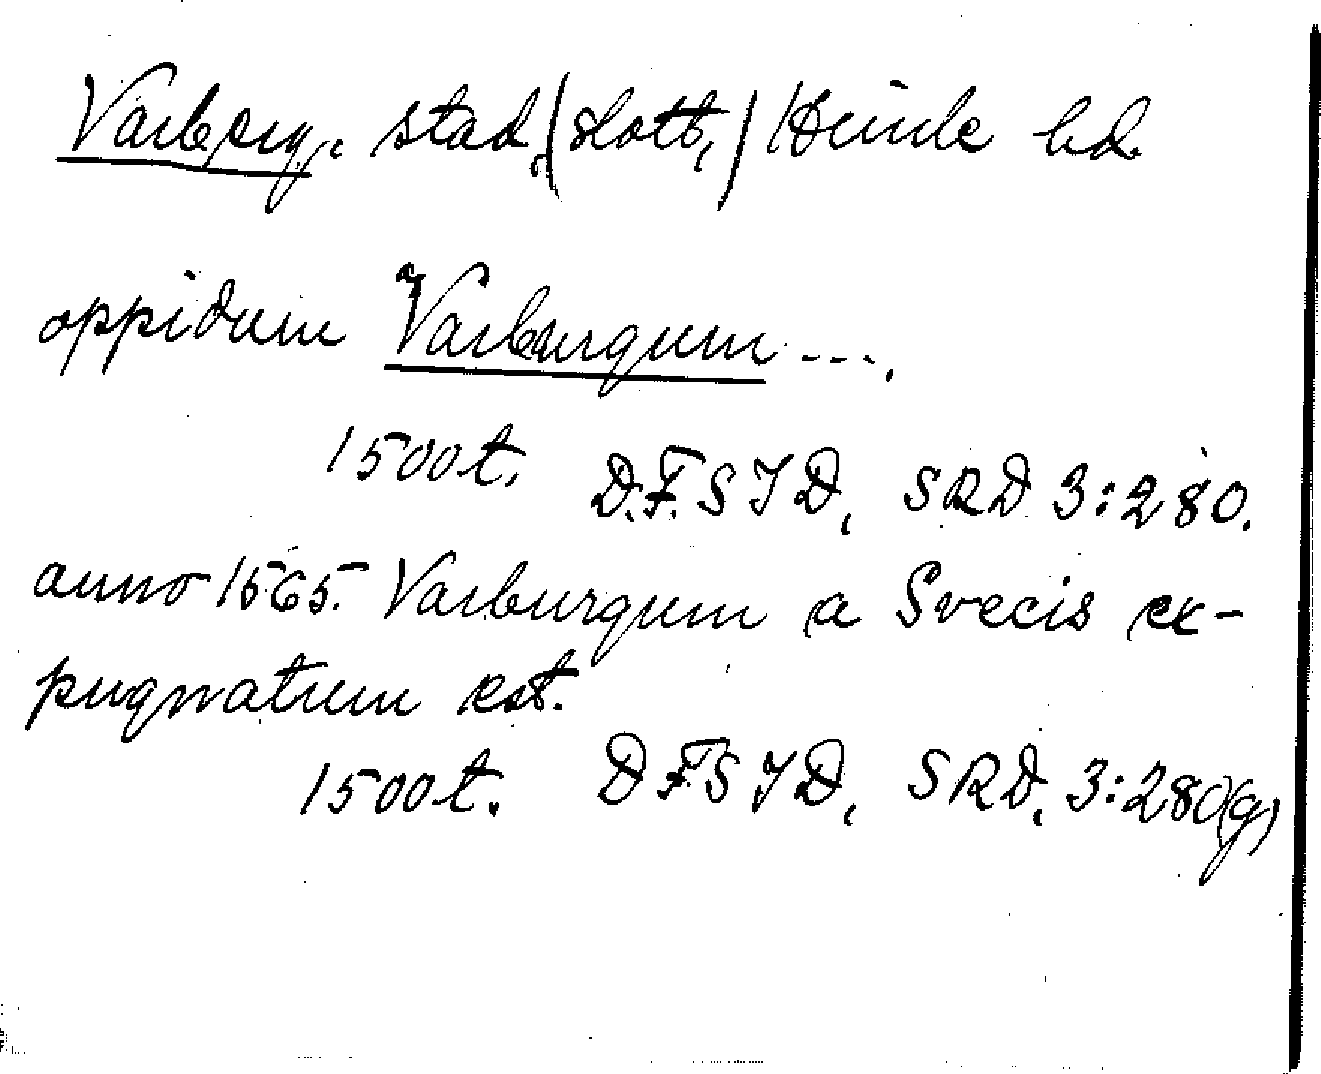 Varberg, stad, (slott,) Himle hd.
oppidum Varburgum ....
1500t. D.F.S J D, SRD 3:280.
anno 1565. Varburgum a Svecis ex-
pugnatum est.
1500t. D F S J D, SRD, 3:280(g)